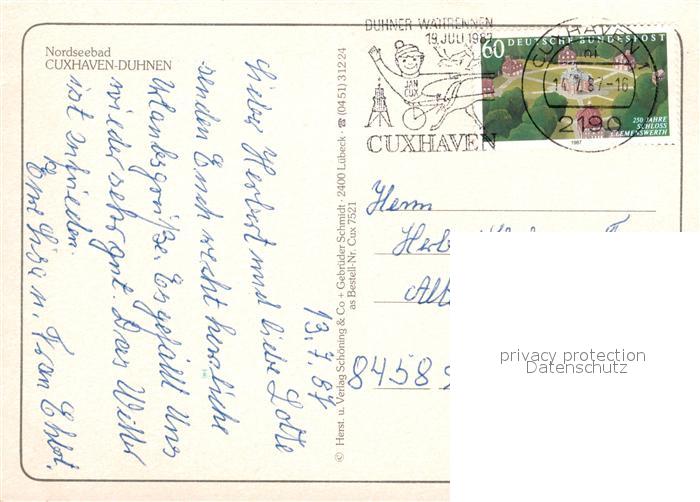 Nordseebad
CUXHAVEN-DUHNEN
13.7.87
Lieber Herbert und liebe Lotte
senden Euch recht herzliche
Urlaubsgrüße. Es gefällt Uns
wieder sehr gut. Das Wetter
ist zufrieden.
Eure Lisa u. Fran
© Herst. u. Verlag Schöning & Co + Gebrüder Schmidt · 2400 Lübeck · ☎ (04 51) 3 12 24
as Bestell-Nr. Cux 7521
DUHNER WATTRENNEN
19. JULI 1987
JAN
CUX
CUXHAVEN
60 DEUTSCHE BUNDESPOST
250 JAHRE
SCHLOSS
CLEMENSWERTH
1987
CUXHAVEN 1
mi
14.7.87-16
2190
Herrn
Herb
8458 S
privacy protection
Datenschutz